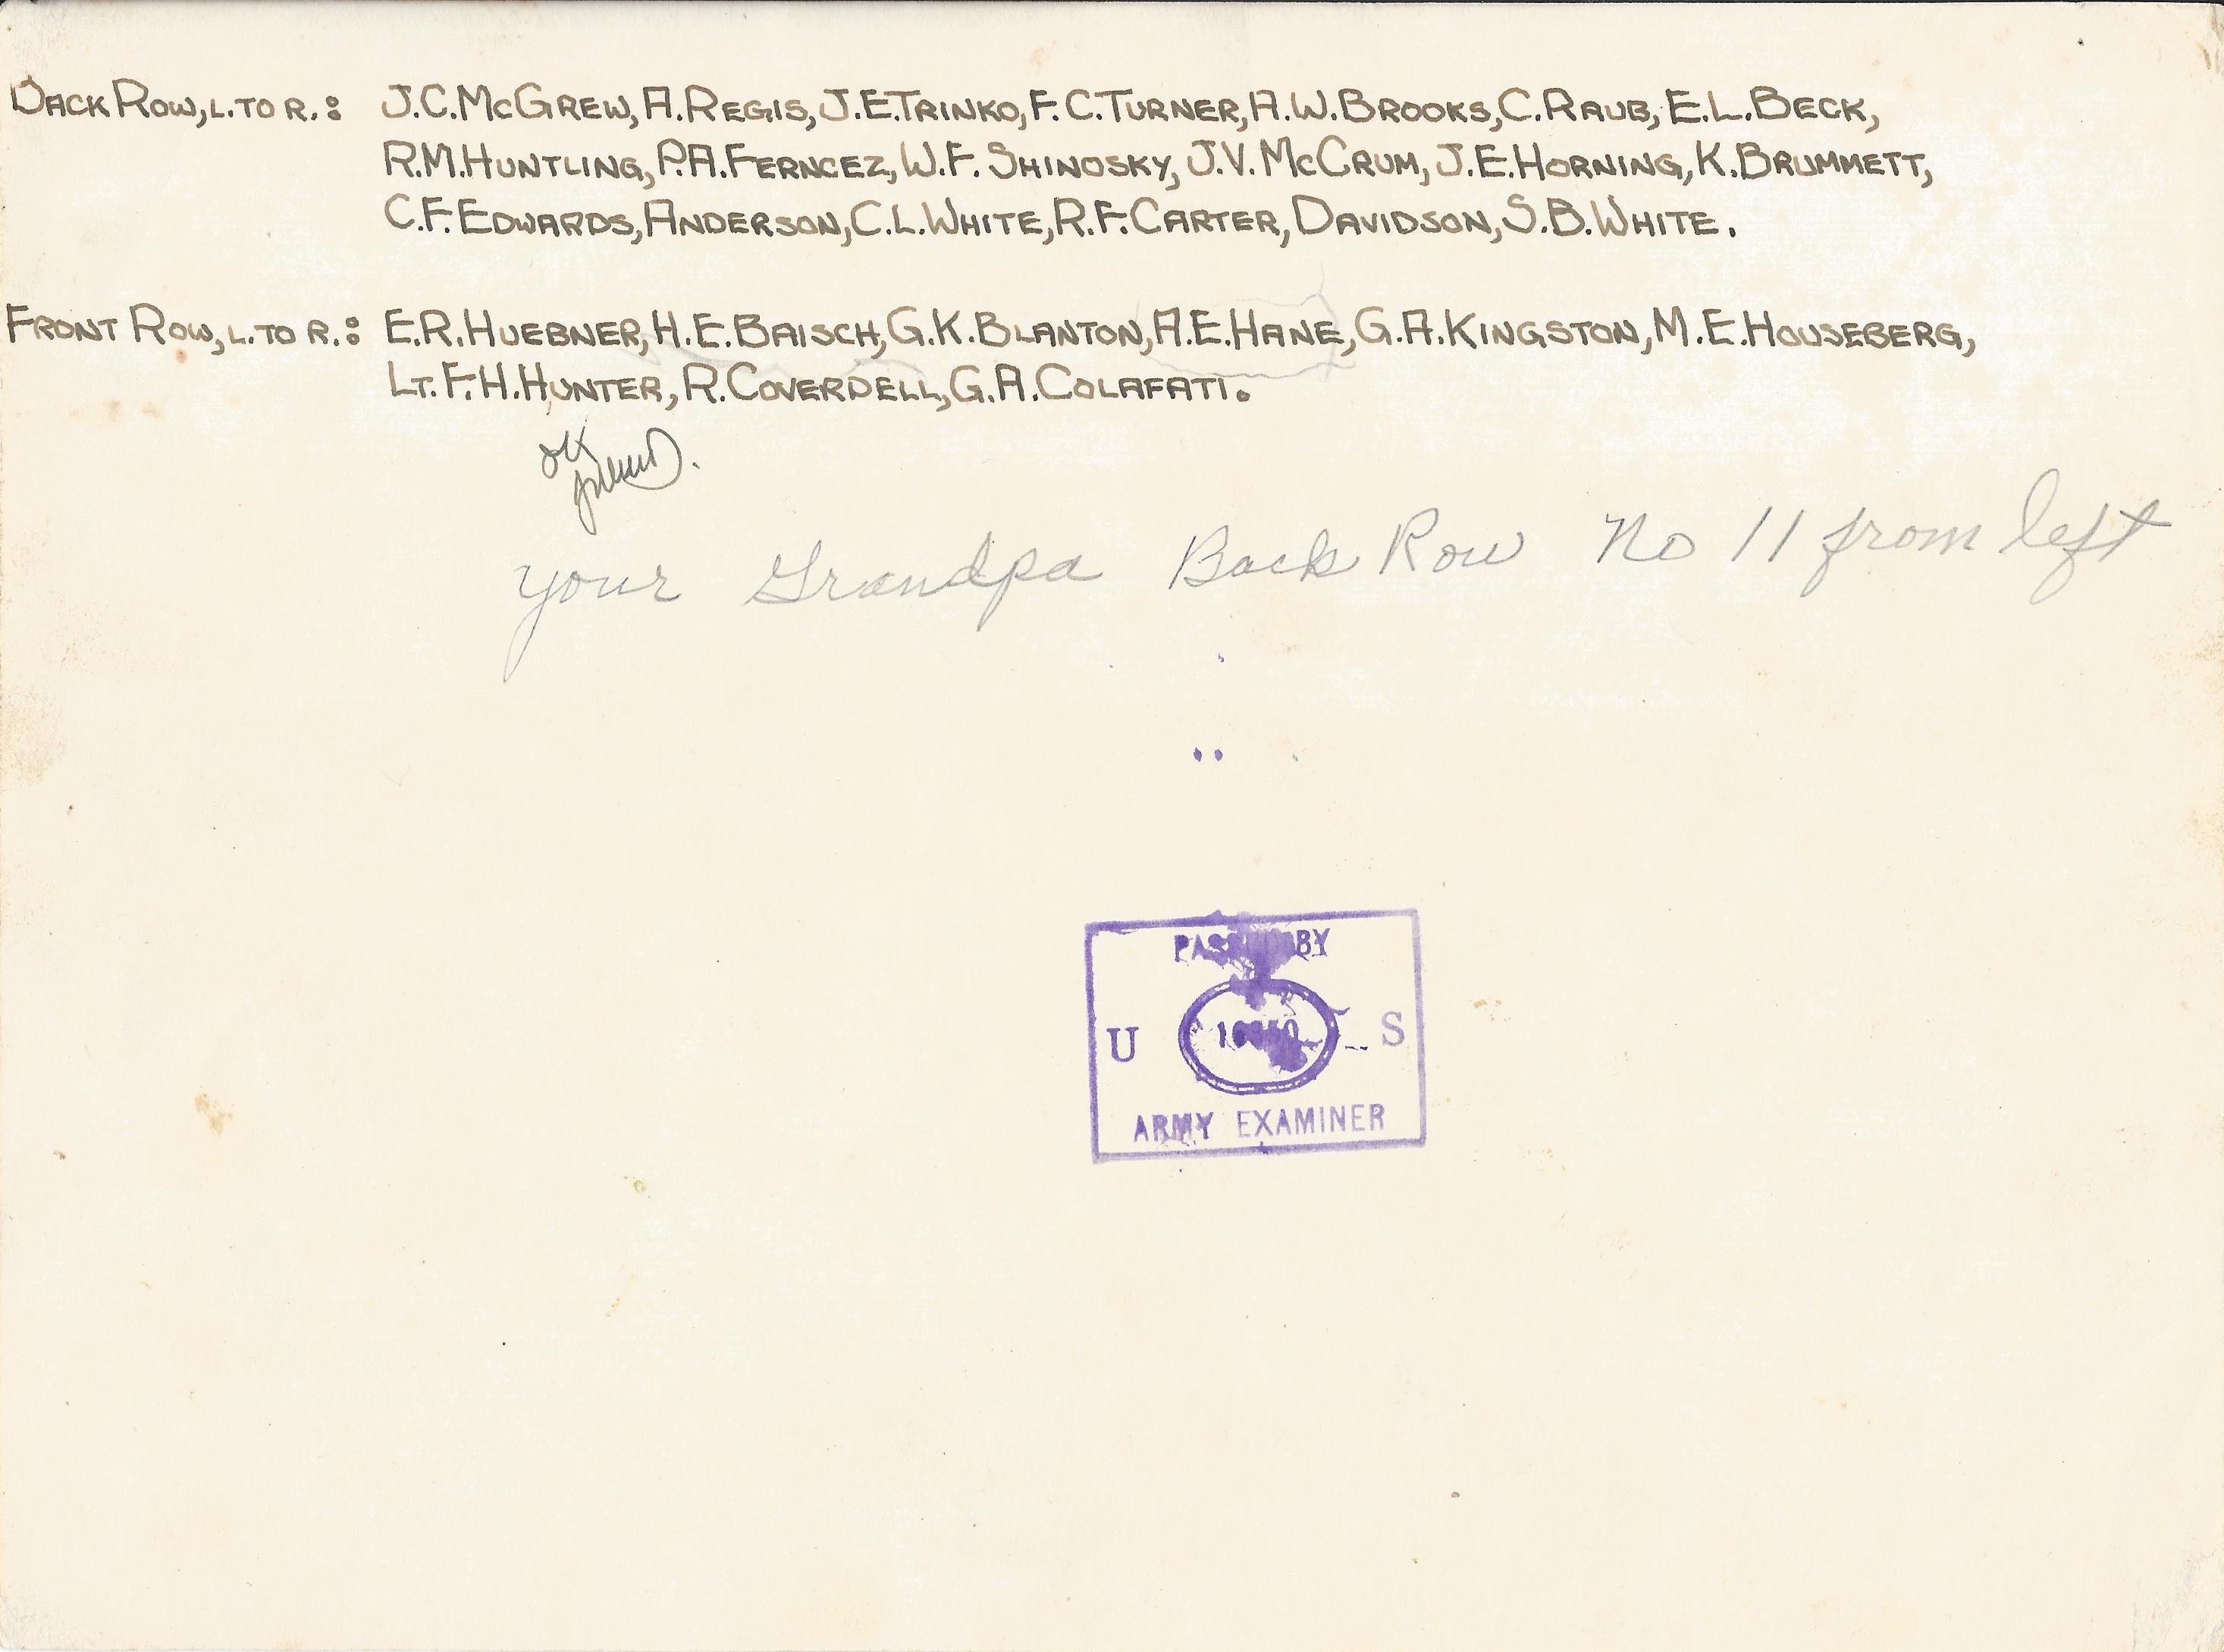 Back Row, L. to R.: J.C. McGrew, A. Regis, J.E. Trinko, F.C. Turner, A.W. Brooks, C. Raub, E.L. Beck,
R.M. Huntling, P.A. Ferncez, W.F. Shinosky, J.V. McCrum, J.E. Horning, K. Brummett,
C.F. Edwards, Anderson, C.L. White, R.F. Carter, Davidson, S.B. White.
Front Row, L. to R.: E.R. Huebner, H.E. Baisch, G.K. Blanton, A.E. Hane, G.A. Kingston, M.E. Houseberg,
Lt. F.H. Hunter, R. Coverdell, G.A. Colafati.
OK
your Grandpa Back Row No 11 from left
PASSED BY
U S
ARMY EXAMINER